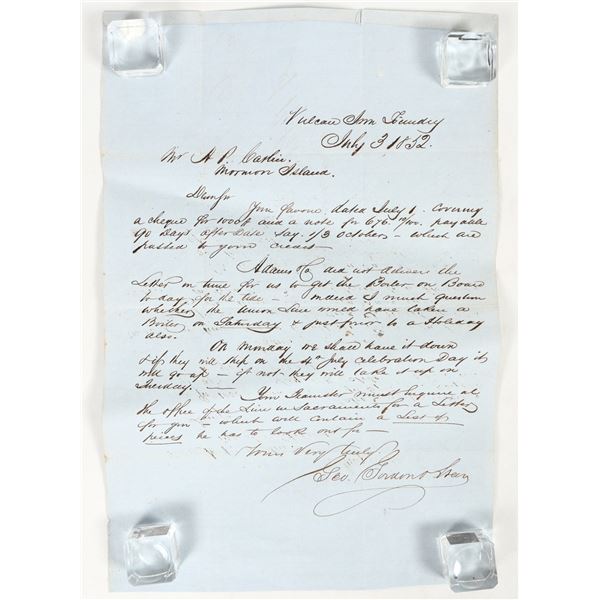 Vulcan Iron Foundry
July 3 1852.
Mr A. P. Catlin.
Mormon Island.
Dear Sir
Your favour dated July 1. covering
a cheque for 1000$ and a note for 676 payable
90 Days after Date say 1/3 October - which are
passed to your credit
Adams & Co did not deliver the
Letter in time for us to get the Boiler on Board
to day for the tide - indeed I much question
whether the Union Line would have taken a
Boiler on Saturday & just prior to a Holiday
also.
On Monday we shall have it down
& if they will ship on the 4th July celebration Day it
will go up - if not they will take it up on
Tuesday. -
Your Teamster must inquire at
the office of the Line in Sacramento for a Letter
for you - which will contain a List of
pieces he has to look out for -
Yours Very truly
Geo. Gordon &